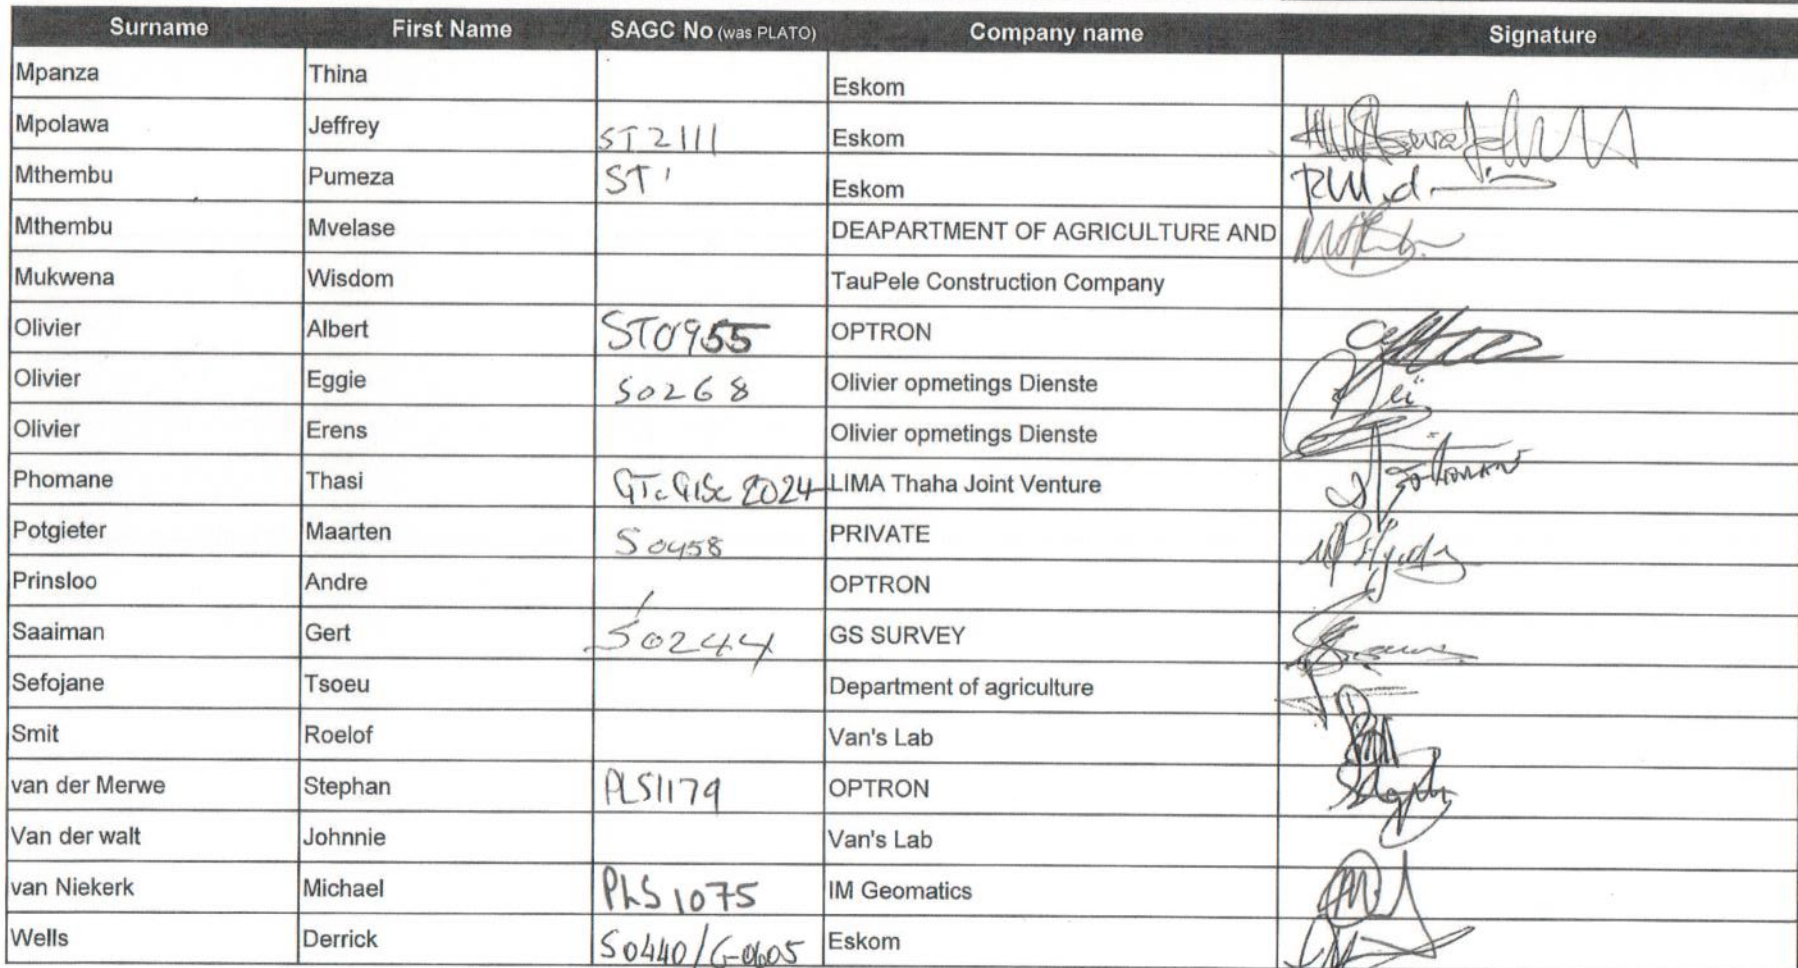 Surname First Name SAGC No (was PLATO) Company name Signature
Mpanza Thina Eskom
Mpolawa Jeffrey ST2111 Eskom
Mthembu Pumeza ST Eskom
Mthembu Mvelase DEAPARTMENT OF AGRICULTURE AND
Mukwena Wisdom TauPele Construction Company
Olivier Albert ST0955 OPTRON
Olivier Eggie S0268 Olivier opmetings Dienste
Olivier Erens Olivier opmetings Dienste
Phomane Thasi GTcGISc 2024 LIMA Thaha Joint Venture
Potgieter Maarten S0458 PRIVATE
Prinsloo Andre OPTRON
Saaiman Gert S0244 GS SURVEY
Sefojane Tsoeu Department of agriculture
Smit Roelof Van's Lab
van der Merwe Stephan PLS1179 OPTRON
Van der walt Johnnie Van's Lab
van Niekerk Michael PLS1075 IM Geomatics
Wells Derrick S0440/ Eskom